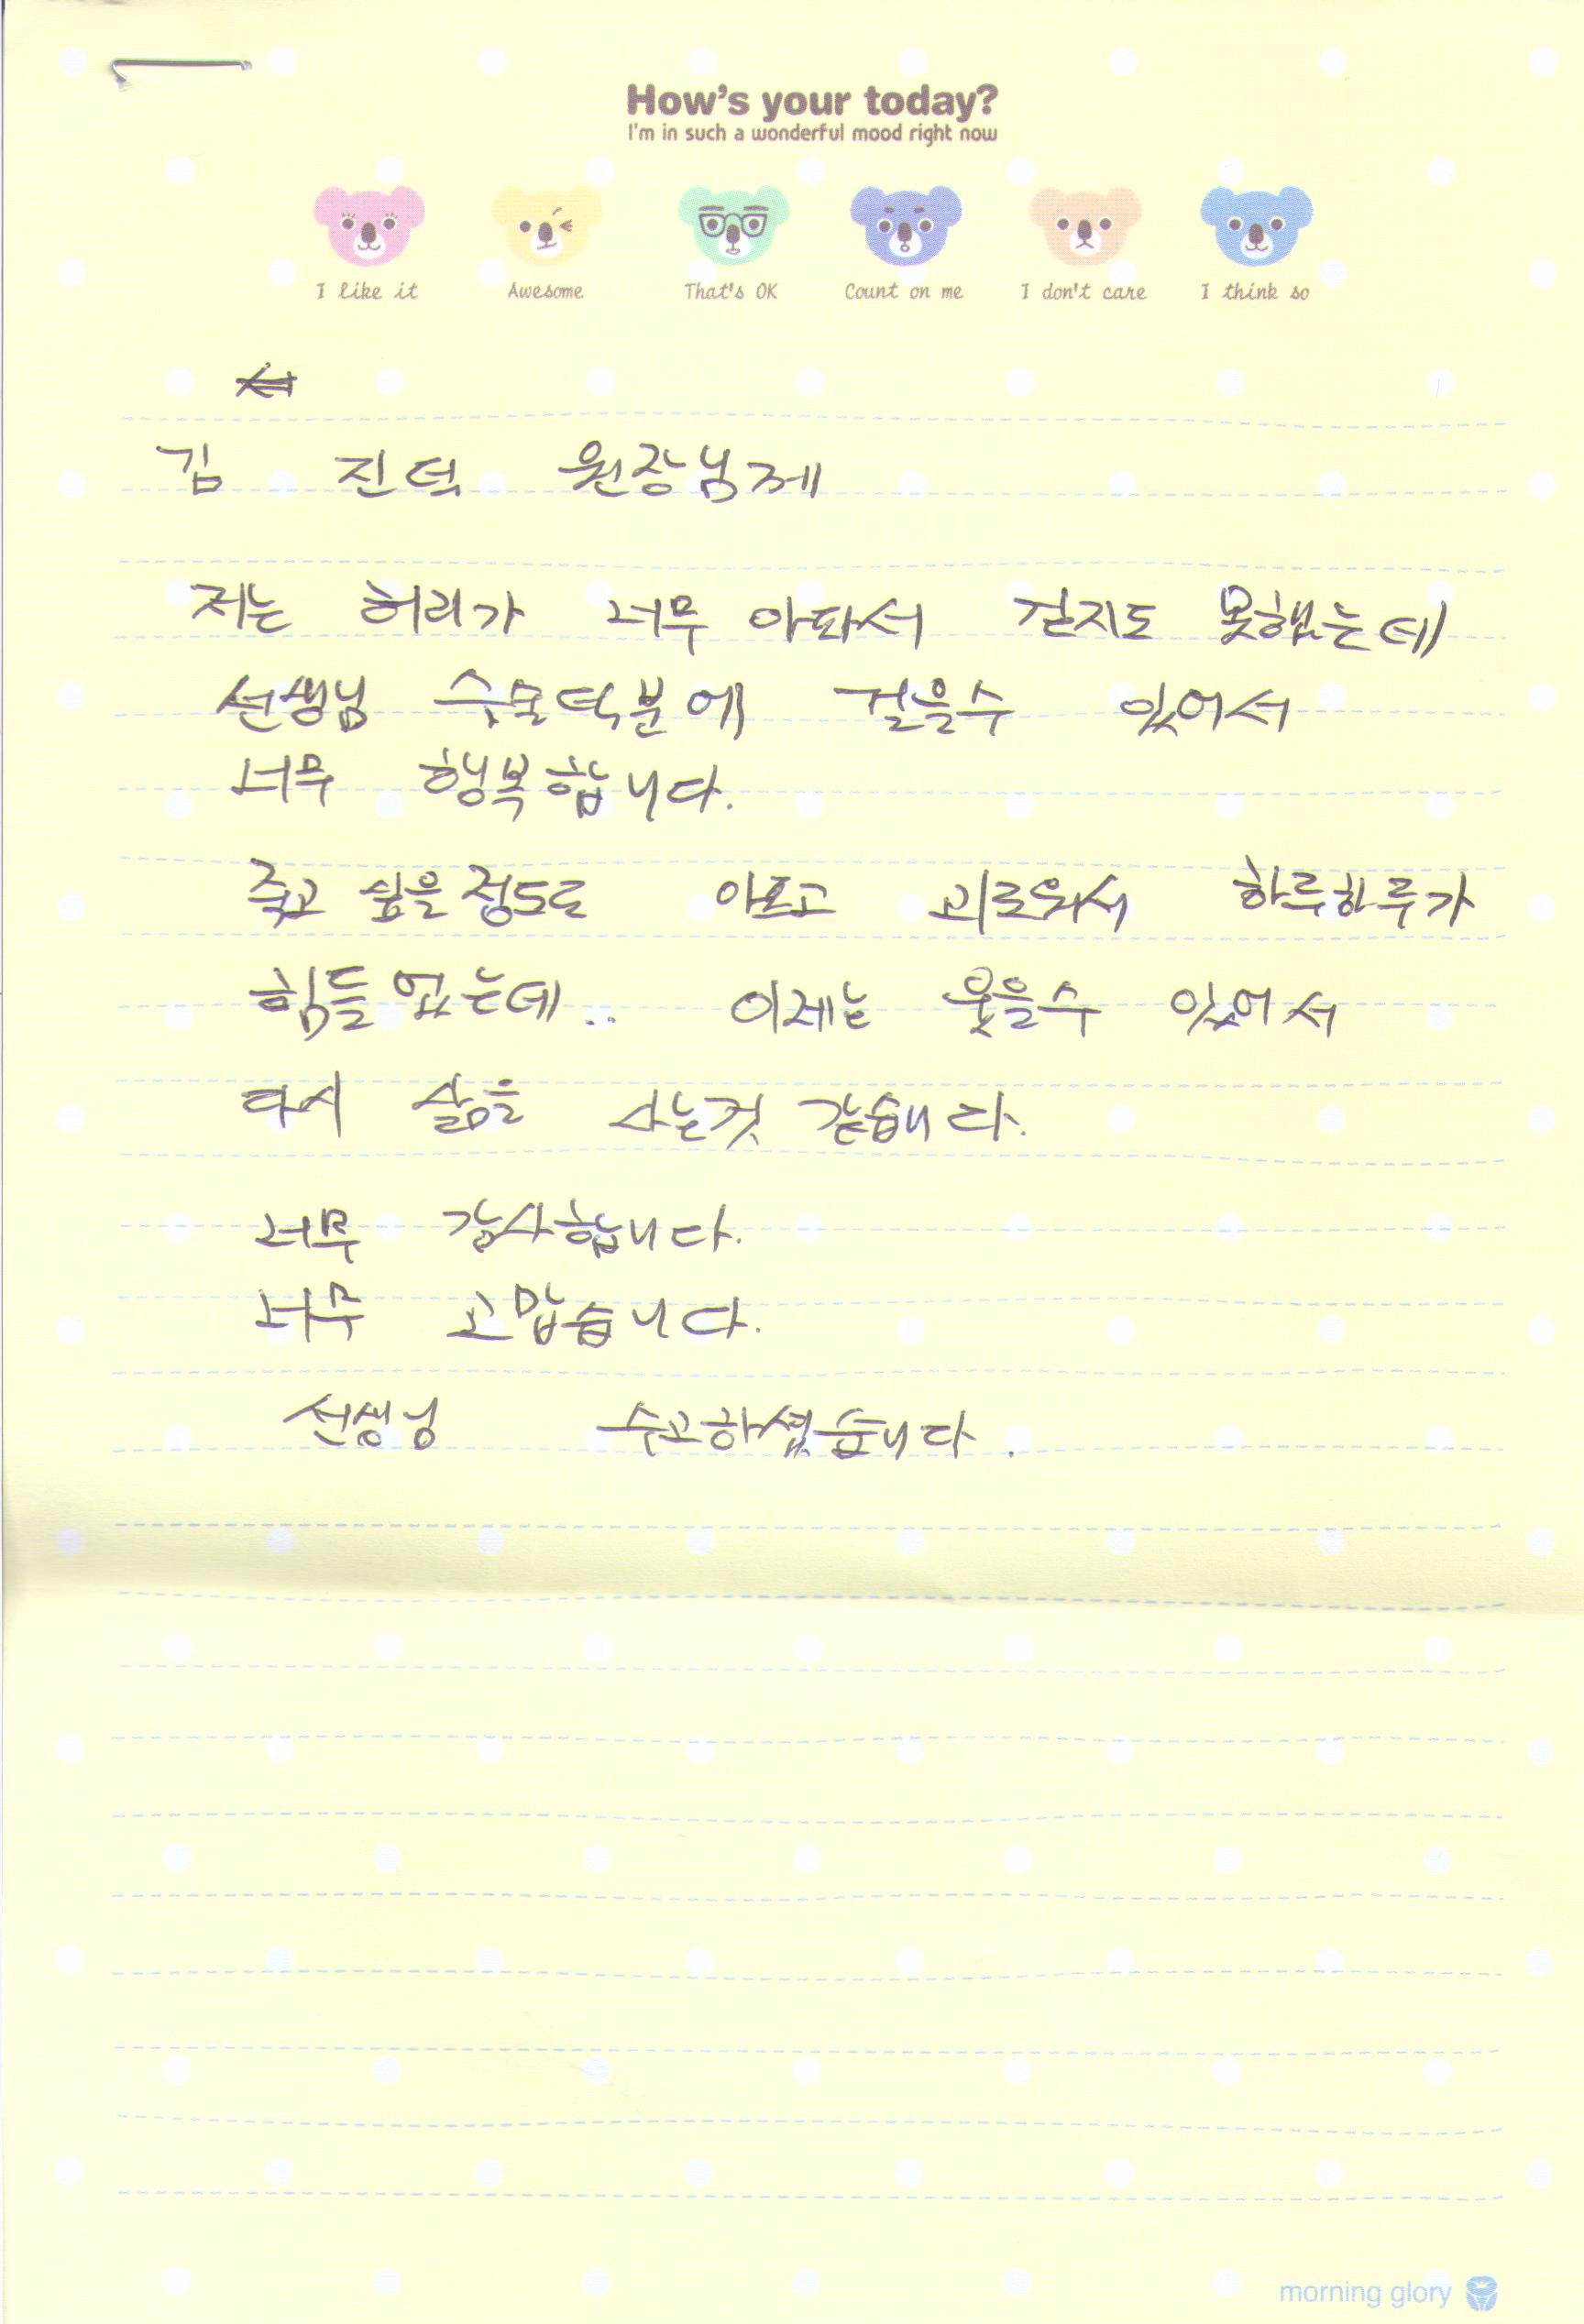 How's your today?
I'm in such a wonderful mood right now
I like it Awesome That's OK Count on me I don't care I think so
김 진덕 원장님께
저는 허리가 너무 아파서 걷지도 못했는데
선생님 수술덕분에 걸을수 있어서
너무 행복합니다.
죽고 싶을 정도로 아프고 괴로워서 하루하루가
힘들었는데.. 이제는 웃을수 있어서
다시 삶을 사는것 같습니다.
너무 감사합니다.
너무 고맙습니다.
선생님 수고하셨습니다.
morning glory